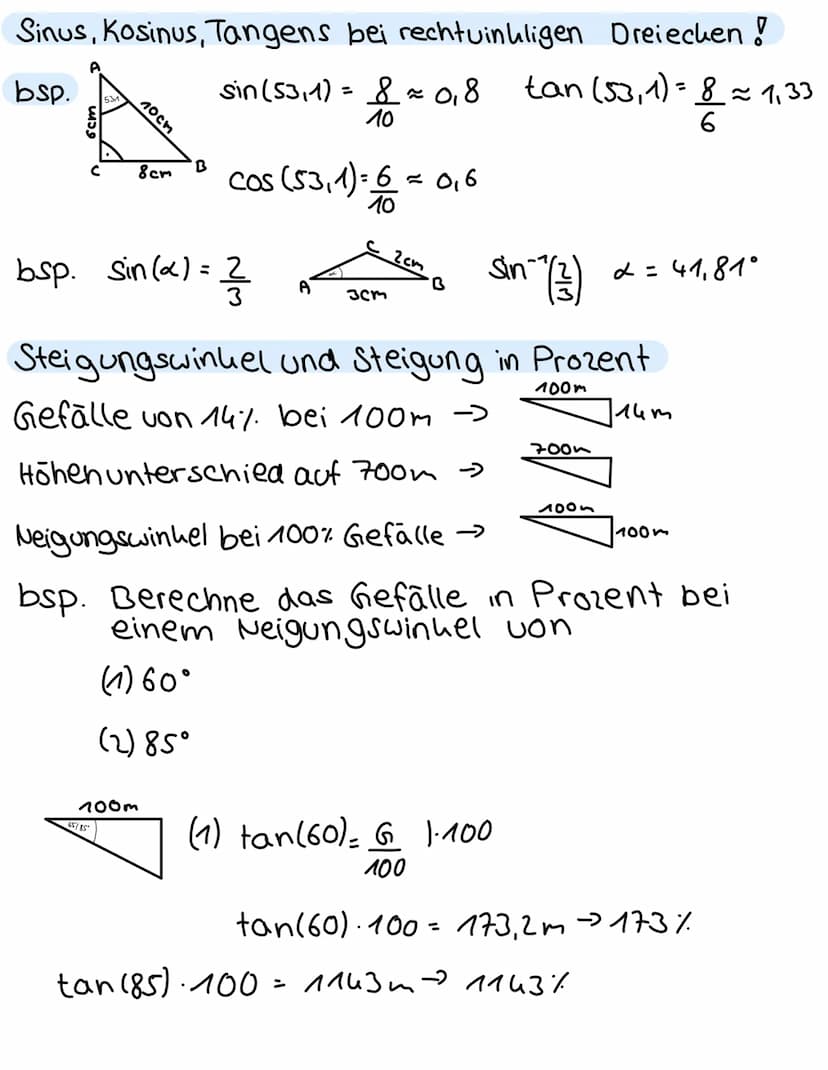 Sinus, Kosinus, Tangens bei rechtwinkligen Dreiecken!
bsp.
A
53,1
6cm
10cm
C
8cm
B
sin(53,1) = 8/10 ≈ 0,8
tan(53,1) = 8/6 ≈ 1,33
cos(53,1) = 6/10 ≈ 0,6
bsp. sin(α) = 2/3
A
C
2cm
B
3cm
sin⁻¹(2/3) α = 41,81°
Steigungswinkel und Steigung in Prozent
Gefälle von 14% bei 100m →
100m
14m
Höhenunterschied auf 700m →
700m
Neigungswinkel bei 100% Gefälle →
100m
100m
bsp. Berechne das Gefälle in Prozent bei
einem Neigungswinkel von
(1) 60°
(2) 85°
100m
(1) tan(60) = G/100 |·100
tan(60) · 100 = 173,2m → 173%
tan(85) · 100 = 1143m → 1143%